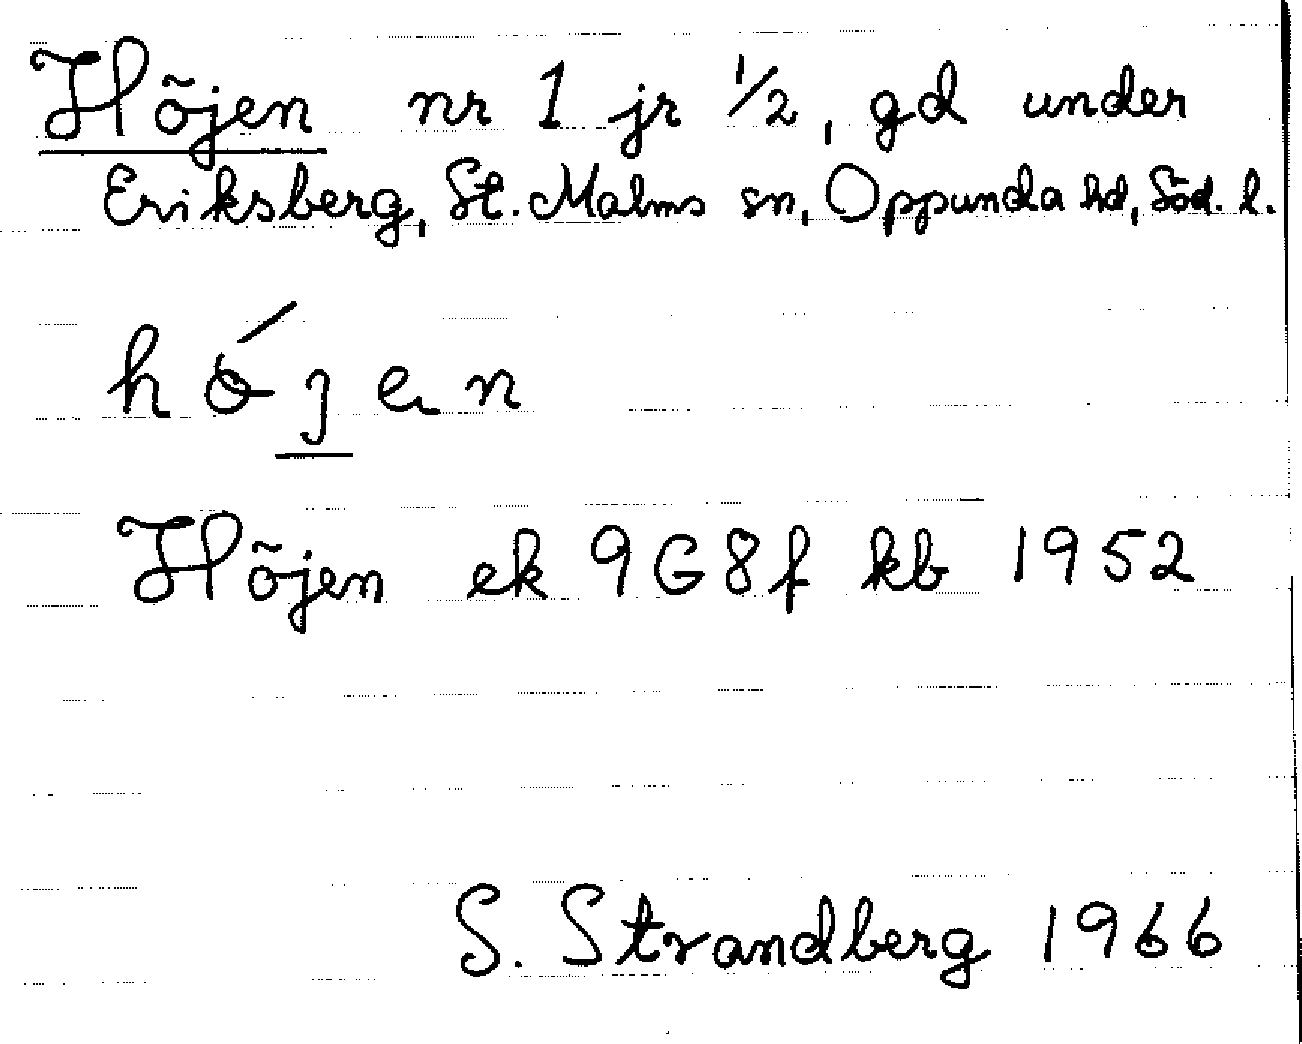 Höjen nr 1 jr 1/2, gd under
Eriksberg, St. Malms sn, Oppunda hd, Söd. l.
hö́jen
Höjen ek 9G8f kb 1952
S. Strandberg 1966